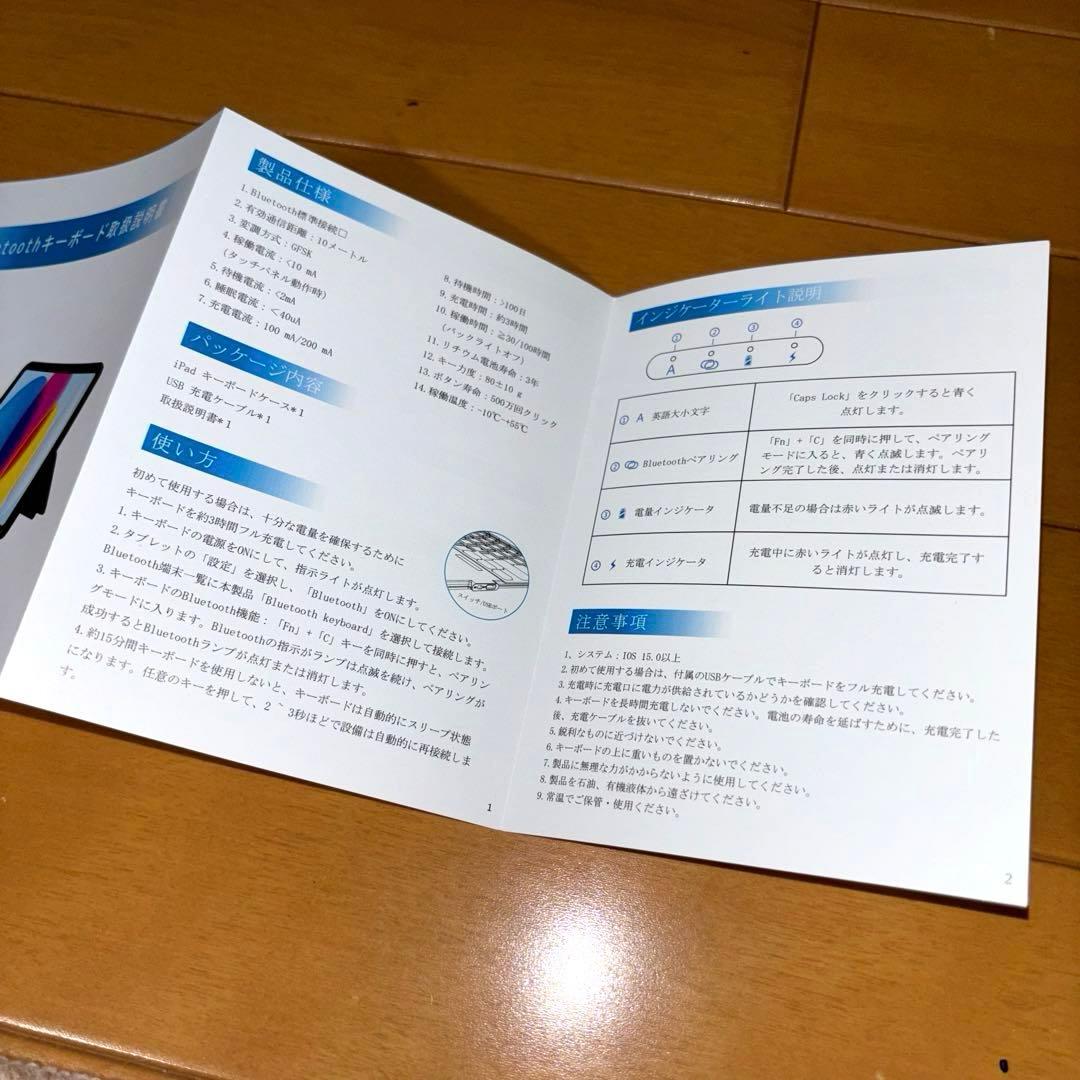 toothキーボード取扱説明書
製品仕様
1. Bluetooth標準接続□
2. 有効通信距離：10メートル
3. 変調方式：GFSK
4. 稼働電流：<10 mA
（タッチパネル動作時）
5. 待機電流：<2mA
6. 睡眠電流：<40uA
7. 充電電流：100 mA/200 mA
8. 待機時間：>100日
9. 充電時間：約3時間
10. 稼働時間：≧30/100時間
（バックライトオフ）
11. リチウム電池寿命：3年
12. キー力度：80±10 g
13. ボタン寿命：500万回クリック
14. 稼働温度：-10℃-+55℃
パッケージ内容
iPad キーボードケース*1
USB 充電ケーブル*1
取扱説明書*1
使い方
初めて使用する場合は、十分な電量を確保するために
キーボードを約3時間フル充電してください。
1. キーボードの電源をONにして、指示ライトが点灯します。
2. タブレットの「設定」を選択し、「Bluetooth」をONにしてください。
Bluetooth端末一覧に本製品「Bluetooth keyboard」を選択して接続します。
3. キーボードのBluetooth機能：「Fn」+「C」キーを同時に押すと、ペアリン
グモードに入ります。Bluetoothの指示がランプは点滅を続け、ペアリングが
成功するとBluetoothランプが点灯または消灯します。
4. 約15分間キーボードを使用しないと、キーボードは自動的にスリープ状態
になります。任意のキーを押して、2～3秒ほどで設備は自動的に再接続しま
す。
スイッチ/USBポート
1
インジケーターライト説明
① ② ③ ④
A
① A 英語大小文字
「Caps Lock」をクリックすると青く
点灯します。
② Bluetoothペアリング
「Fn」+「C」を同時に押して、ペアリング
モードに入ると、青く点滅します。ペアリ
ング完了した後、点灯または消灯します。
③ 電量インジケータ
電量不足の場合は赤いライトが点滅します。
④ 充電インジケータ
充電中に赤いライトが点灯し、充電完了す
ると消灯します。
注意事項
1、システム：IOS 15.0以上
2. 初めて使用する場合は、付属のUSBケーブルでキーボードをフル充電してください。
3. 充電時に充電口に電力が供給されているかどうかを確認してください。
4. キーボードを長時間充電しないでください。電池の寿命を延ばすために、充電完了した
後、充電ケーブルを抜いてください。
5. 鋭利なものに近づけないでください。
6. キーボードの上に重いものを置かないでください。
7. 製品に無理な力がかからないように使用してください。
8. 製品を石油、有機液体から遠ざけてください。
9. 常温でご保管・使用ください。
2